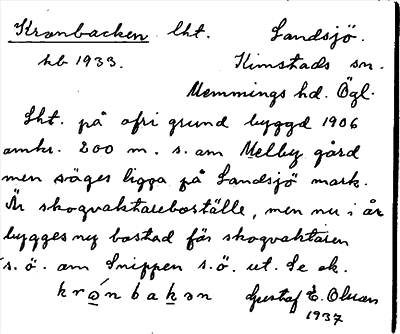 Kronbacken lht. Landsjö.
hb 1933. Kimstads sn.
Memmings hd. Ögl.
Lht. på ofri grund byggd 1906
omkr. 200 m. s. om Melby gård
men säges ligga på Landsjö mark.
Är skogvaktareboställe, men nu i år
bygges ny bostad för skogvaktaren
s. ö. om Snippen s. ö. ut. Se ek.
kró̲nbak̲ən Gustaf E. Olsson
1937